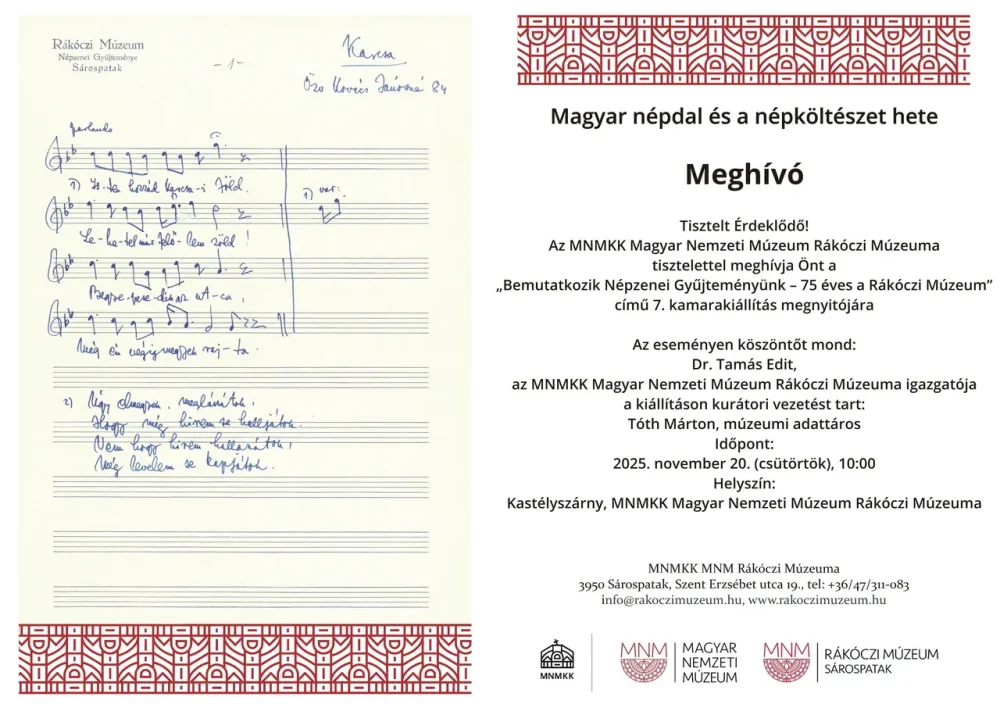 Rákóczi Múzeum
Népzenei Gyűjteménye
Sárospatak
-1-
Karcsa
Őzo Kovács Jánosné 84
parlando
1) Is-ten hozzád Karcsa-i föld.
1) var:
Le-he-tel már tő-lem zöld!
Még én végig megyek raj-ta.
2) Úgy elmegyek, meglássátok,
Hogy még hírem se halljátok.
Nem hogy hírem hallanátok,
Még levelem se kapjátok.
Magyar népdal és a népköltészet hete
Meghívó
Tisztelt Érdeklődő!
Az MNMKK Magyar Nemzeti Múzeum Rákóczi Múzeuma
tisztelettel meghívja Önt a
„Bemutatkozik Népzenei Gyűjteményünk – 75 éves a Rákóczi Múzeum”
című 7. kamarakiállítás megnyitójára
Az eseményen köszöntőt mond:
Dr. Tamás Edit,
az MNMKK Magyar Nemzeti Múzeum Rákóczi Múzeuma igazgatója
a kiállításon kurátori vezetést tart:
Tóth Márton, múzeumi adattáros
Időpont:
2025. november 20. (csütörtök), 10:00
Helyszín:
Kastélyszárny, MNMKK Magyar Nemzeti Múzeum Rákóczi Múzeuma
MNMKK MNM Rákóczi Múzeuma
3950 Sárospatak, Szent Erzsébet utca 19., tel: +36/47/311-083
info@rakoczimuzeum.hu, www.rakoczimuzeum.hu
MNMKK
MNM
MAGYAR
NEMZETI
MÚZEUM
MNM
RÁKÓCZI MÚZEUM
SÁROSPATAK